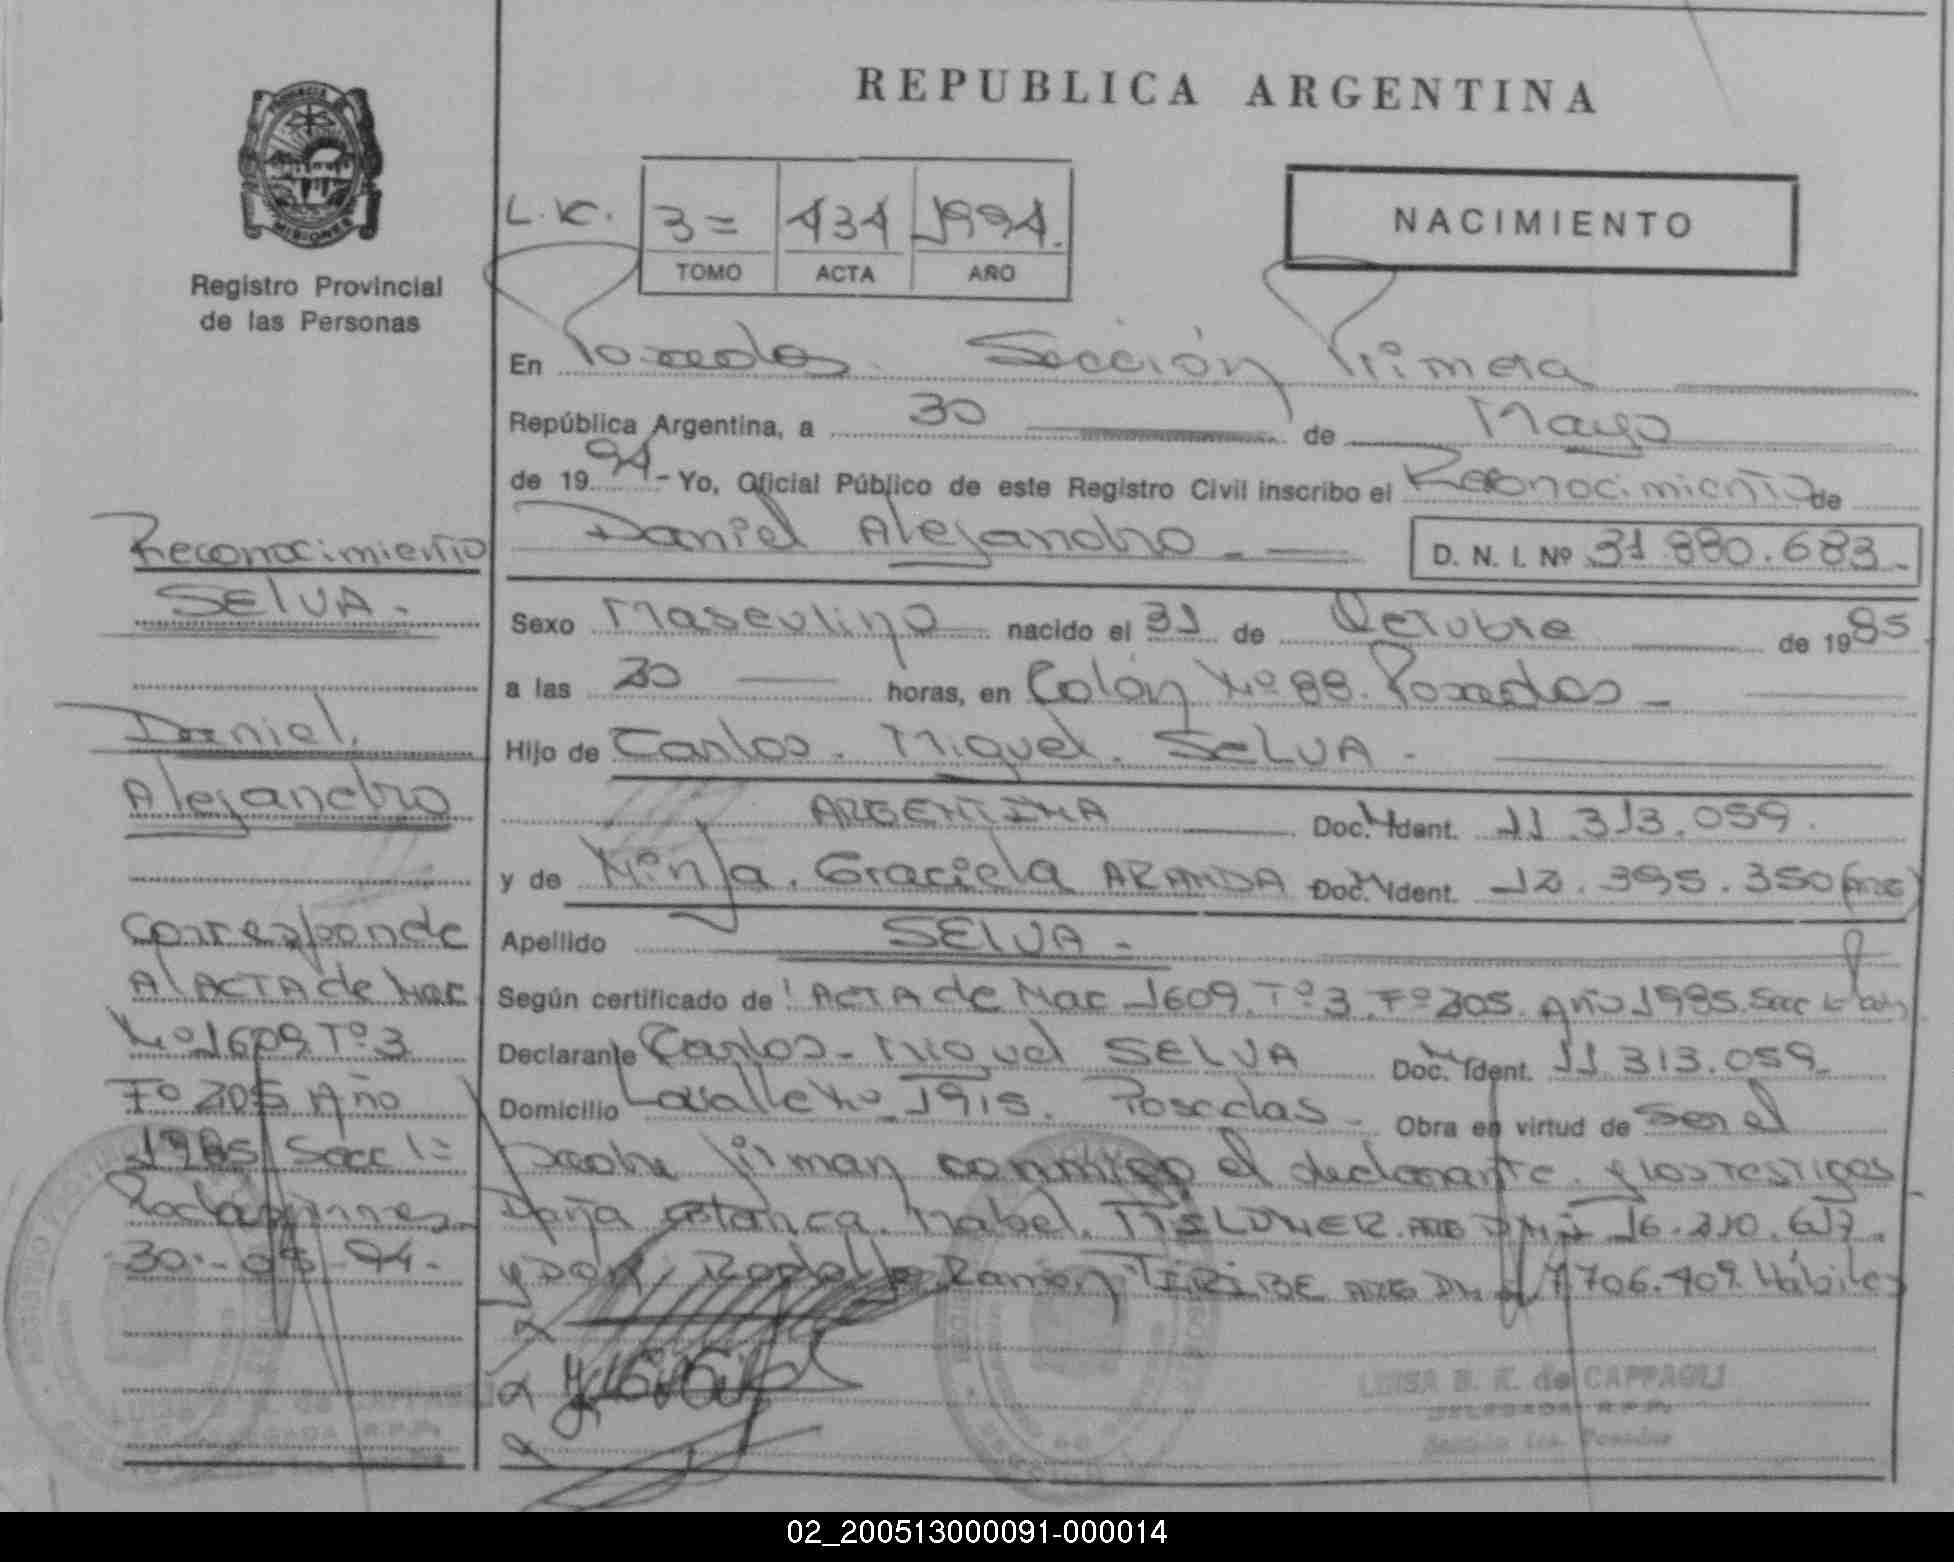 REPUBLICA ARGENTINA
PROVINCIA DE
MISIONES
Registro Provincial
de las Personas
L.K. 3= 434 1994.
TOMO ACTA AÑO
NACIMIENTO
En Posadas. Sección Primera
República Argentina, a 30 de Mayo
de 1994- Yo, Oficial Público de este Registro Civil inscribo el Reconocimiento de
Daniel Alejandro - D. N. I. Nº 31.880.683.-
Sexo Masculino nacido el 31 de Octubre de 1985
a las 20 horas, en Colón Nº 88. Posadas -
Hijo de Carlos. Miguel. SELVA.
ARGENTINA Doc. Ident. 11.313.059.
y de Ninfa. Graciela ARANDA Doc. Ident. 12.395.350 (ARG)
Apellido SELVA.-
Según certificado de ACTA de Nac 1609. Tº 3. Fº 205. Año 1985. Secc
Declarante Carlos- Miguel SELVA Doc. Ident. 11.313.059.
Domicilio Lavalle Nº 1915. Posadas. Obra en virtud de Ser el
Padre firman conmigo el declarante. y los testigos
Doña Blanca. Mabel. ARG DNI 16.210.617.
y Don. Rodolfo Ramon ARG DNI 7.706.409. Hábiles
LUISA B. K. de CAPPAGLI
DELEGADA R.P.P.
Sección 1ra. Posadas
Reconocimiento
SELVA.-
Daniel.
Alejandro
Corresponde
Al ACTA de Nac
Nº 1609 Tº 3
Fº 205 Año
1985 Secc 1=
30-05-94.
02_200513000091-000014